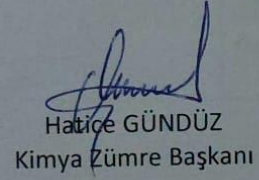 Hatice GÜNDÜZ
Kimya Zümre Başkanı